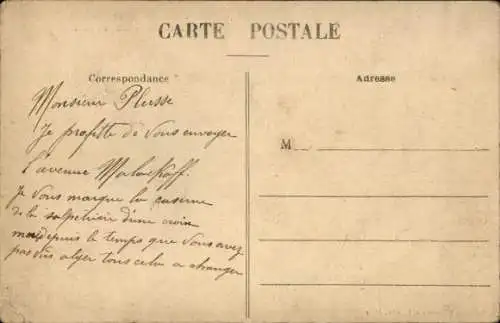 CARTE POSTALE
Correspondance
Adresse
Monsieur Plusse
Je profitte de vous envoyer
l'avenue Malakoff.
Je vous marque la caserne
de la salpetriere d'une croix
mais depuis le temps que vous avez
pas vus alger tous cela a changer
M